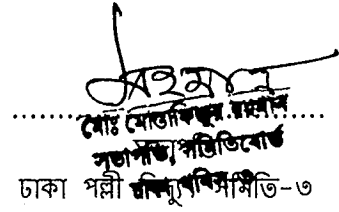 মোঃ মোস্তাফিজুর রহমান
সভাপতি, সমিতিবোর্ড
ঢাকা পল্লী বিদ্যুৎ সমিতি-৩